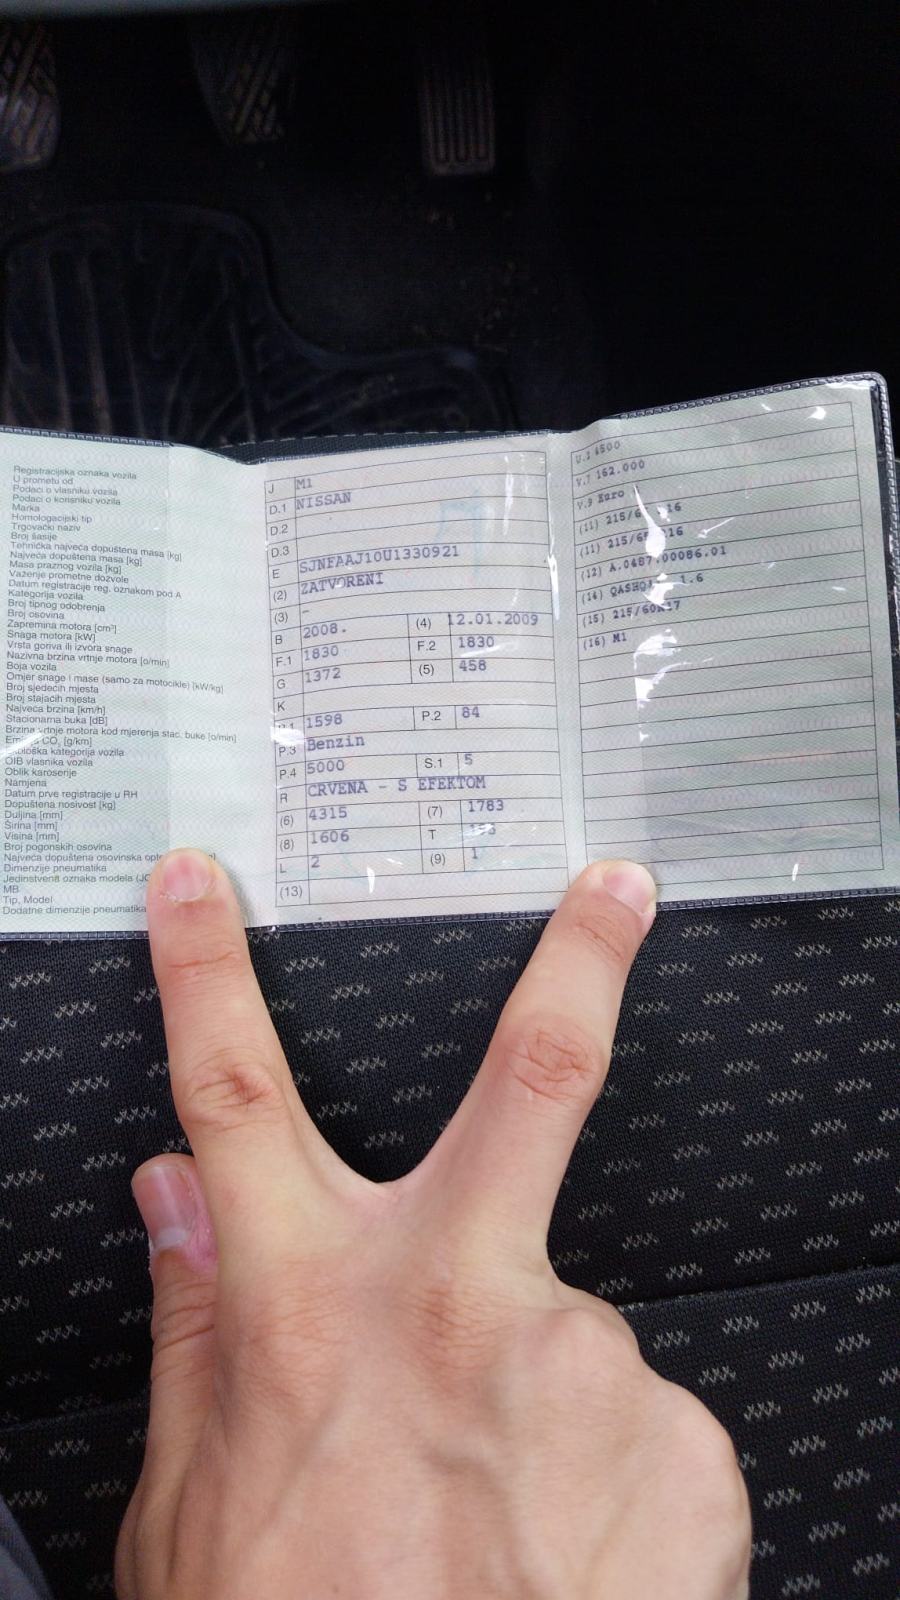 Registracijska oznaka vozila
U prometu od
Podaci o vlasniku vozila
Podaci o korisniku vozila
Marka
Homologacijski tip
Trgovački naziv
Broj šasije
Tehnička najveća dopuštena masa [kg]
Najveća dopuštena masa [kg]
Masa praznog vozila [kg]
Važenje prometne dozvole
Datum registracije reg. oznakom pod A
Kategorija vozila
Broj tipnog odobrenja
Broj osovina
Zapremina motora [cm³]
Snaga motora [kW]
Vrsta goriva ili izvora snage
Nazivna brzina vrtnje motora [o/min]
Boja vozila
Omjer snage i mase (samo za motocikle) [kW/kg]
Broj sjedećih mjesta
Broj stajaćih mjesta
Najveća brzina [km/h]
Stacionarna buka [dB]
Brzina vrtnje motora kod mjerenja stac. buke [o/min]
CO₂ [g/km]
kategorija vozila
OIB vlasnika vozila
Oblik karoserije
Namjena
Datum prve registracije u RH
Dopuštena nosivost [kg]
Duljina [mm]
Širina [mm]
Visina [mm]
Broj pogonskih osovina
Najveća dopuštena osovinska
Dimenzije pneumatika
Jedinstvena oznaka modela
MB
Tip, Model
Dodatne dimenzije pneumatika
J M1
D.1 NISSAN
D.2
D.3
E SJNFAAJ10U1330921
(2) ZATVORENI
(3) –
B 2008. (4) 12.01.2009
F.1 1830 F.2 1830
G 1372 (5) 458
K
1598 P.2 84
P.3 Benzin
P.4 5000 S.1 5
R CRVENA - S EFEKTOM
(6) 4315 (7) 1783
(8) 1606 T
L 2 (9) 1
(13)
V.7 162.000
V.9 Euro
(11)
(11)
(12) A.0487.00086.01
(14) 1.6
(15) 215/60R17
(16) M1